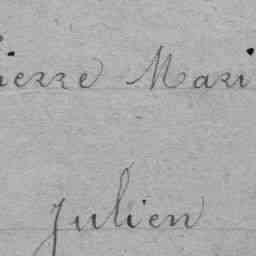 Pierre Mari
Julien